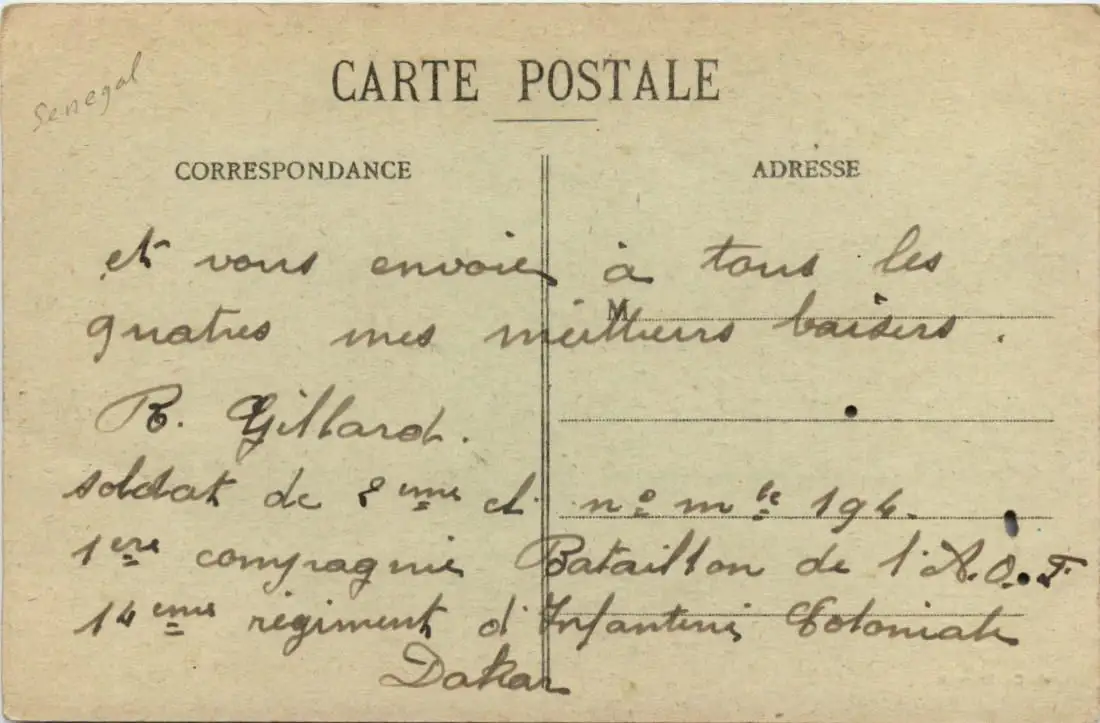 Senegal
CARTE POSTALE
CORRESPONDANCE
ADRESSE
et vous envoie à tous les
M
quatres mes meilleurs baisers.
R. Gillard.
soldat de 2ème cl no mle 194.
1ère compagnie Bataillon de l'A.O.F
14ème régiment d'Infanterie Coloniale
Dakar